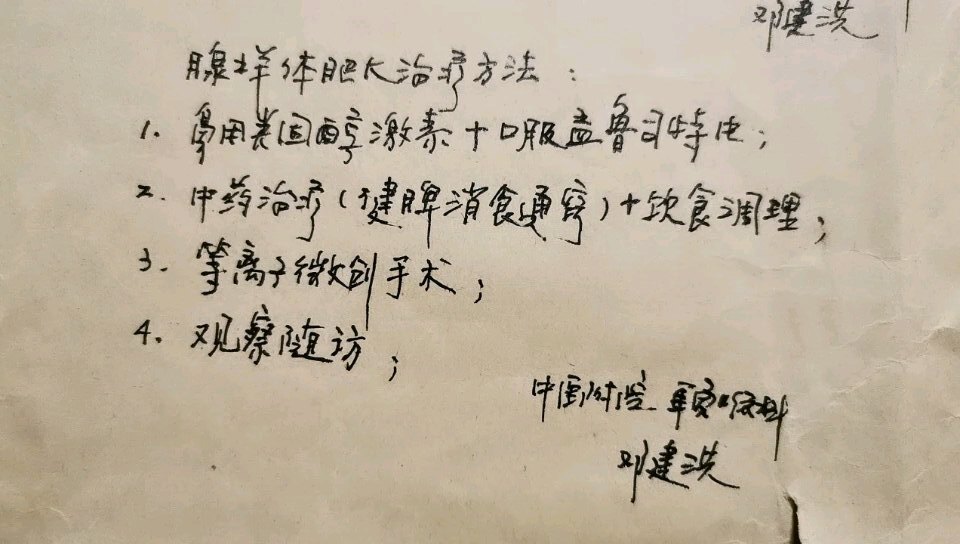 邓建洪
腺样体肥大治疗方法：
1. 鼻用类固醇激素+口服孟鲁司特电；
2. 中药治疗（健脾消食通窍）+饮食调理；
3. 等离子微创手术；
4. 观察随访；
中医附院 耳鼻喉科
邓建洪